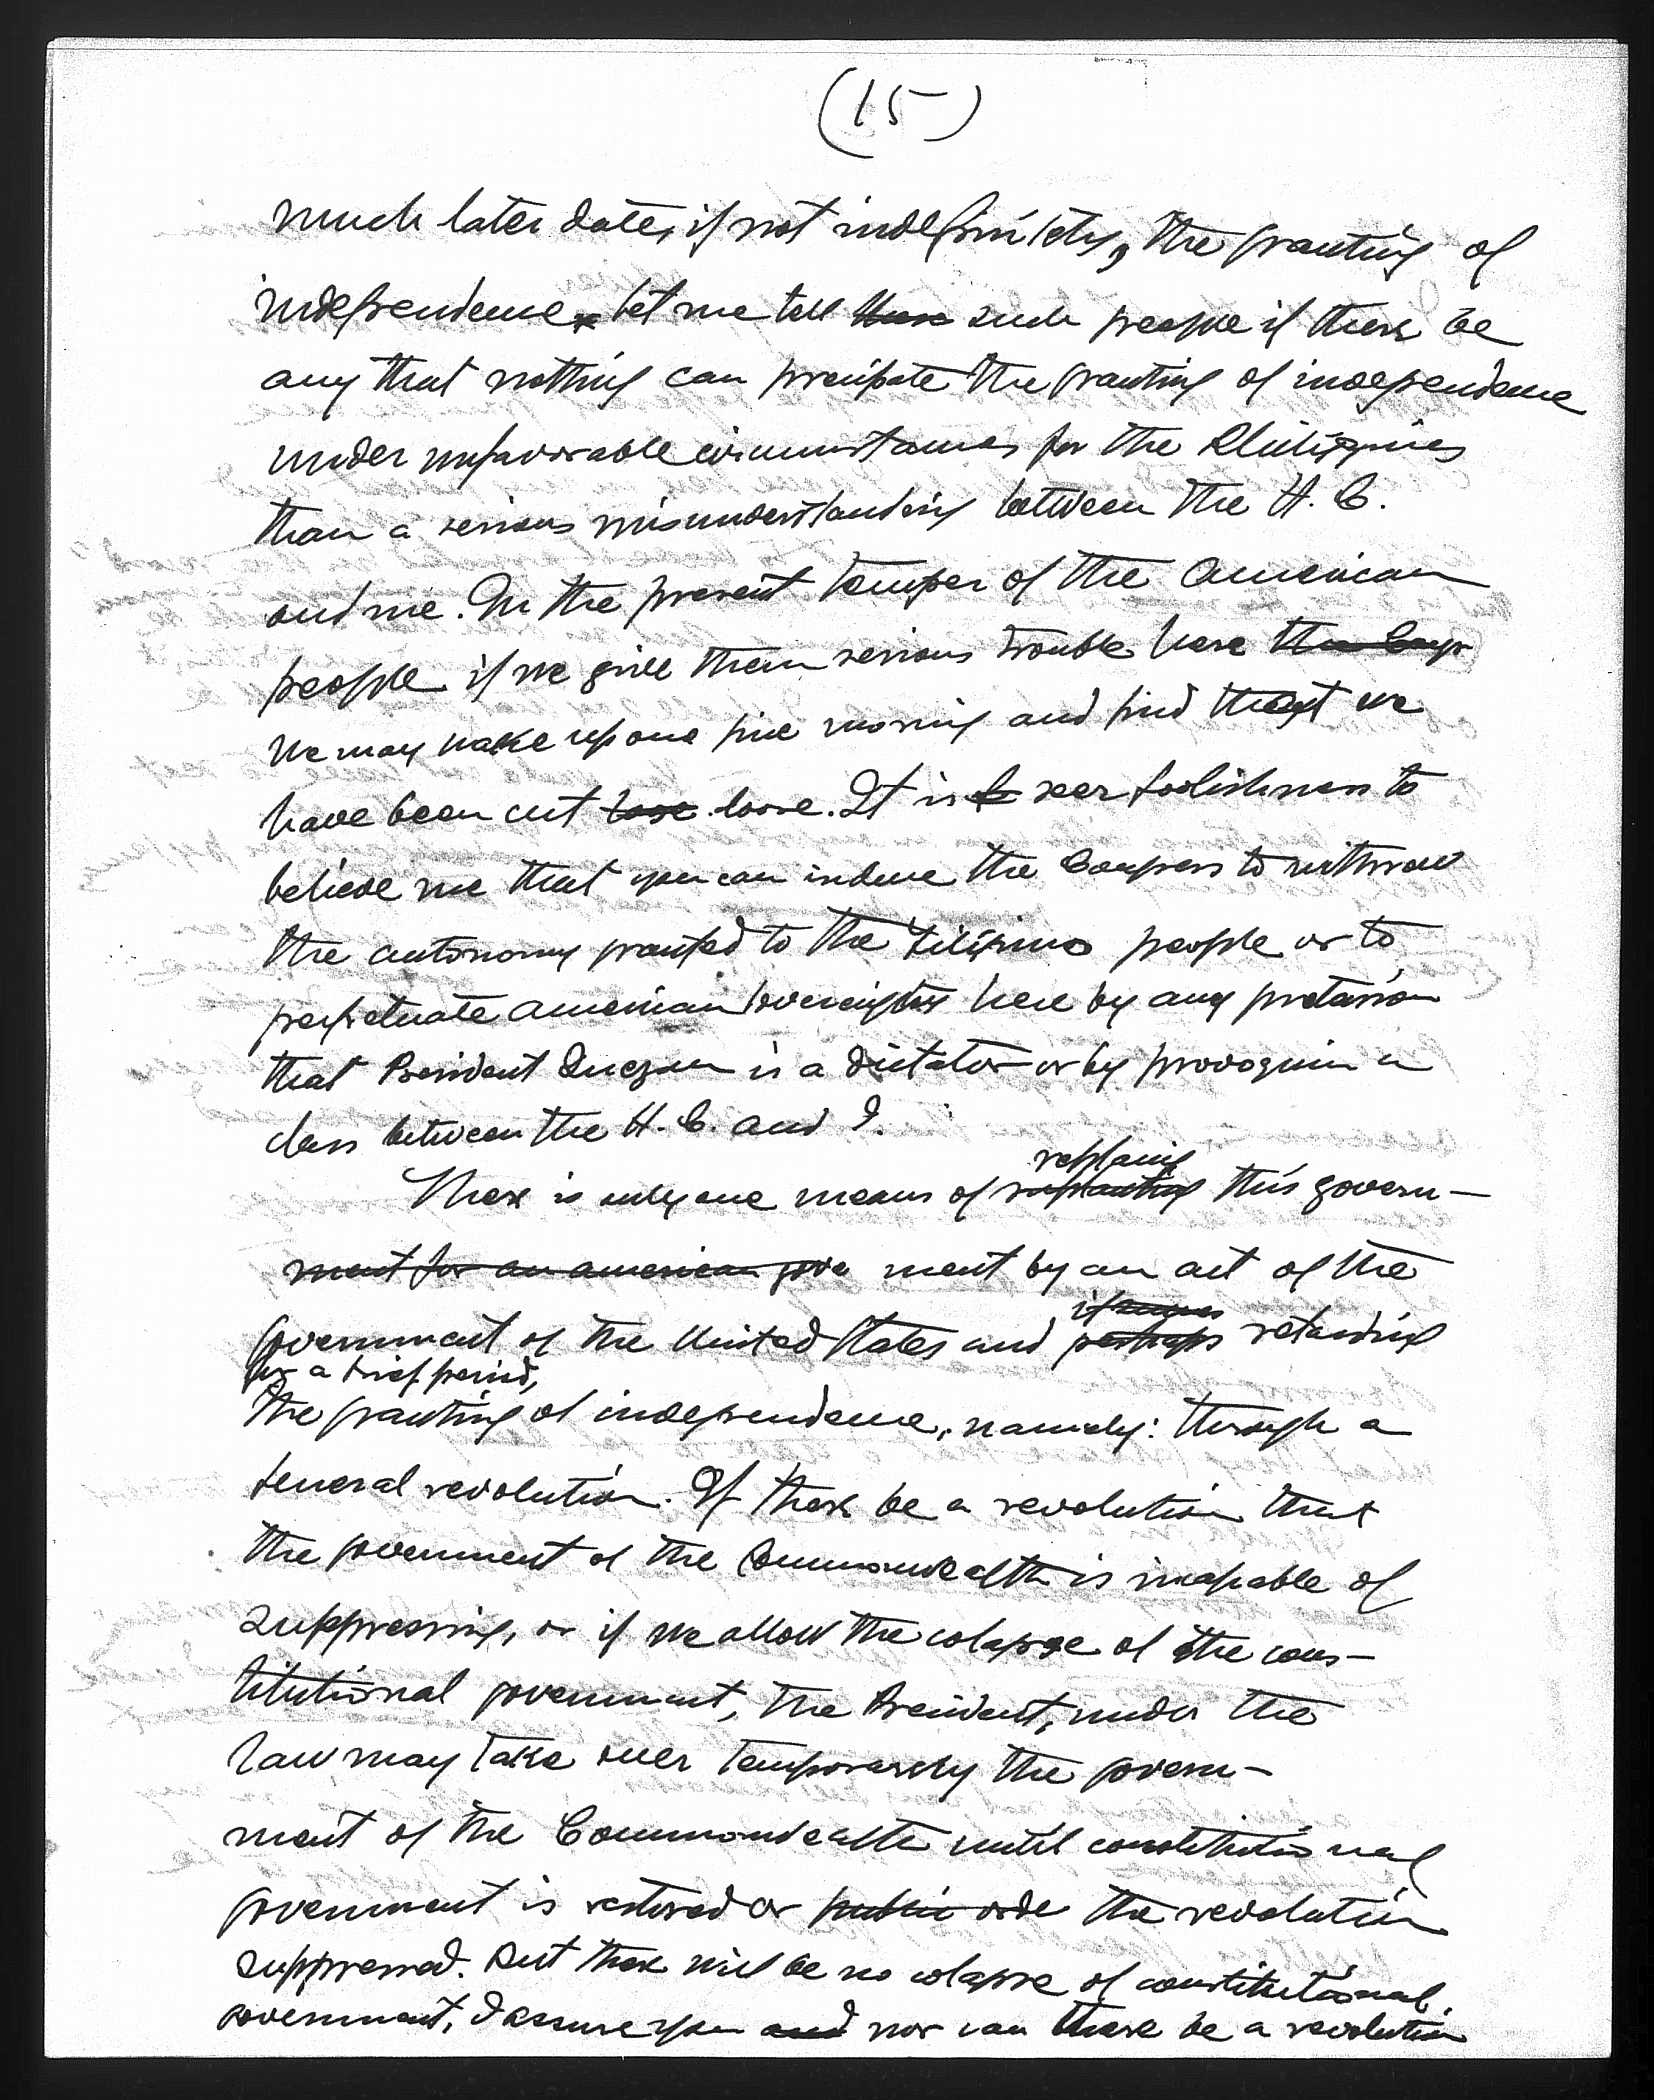 (15)
much later date, if not indefinitely, the granting of
independence. Let me tell those such people if there be
any that nothing can precipate the granting of independence
under unfavorable circumstances for the Philippines
than a serious misunderstanding between the H. C.
and me. In the present temper of the American
people if we give them serious trouble here the Congr
we may wake up one fine morning and find that we
have been cut lose loose. It is seer foolishness to
believe me that you can induce the Congress to withraw
the autonomy granted to the Filipino people or to
perpetuate American sovereignty here by any pretension
that President Quezon is a dictator or by provoquin a
class between the H. C. and I.
replacing
There is only one means of supplanting this govern-
ment for an american gove ment by an act of the
if
government of the United States and perhaps retarding
for a brief period,
the granting of independence, namely: through a
general revolution. If there be a revolution that
the government of the Commonwealth is incapable of
suppressing, or if we allow the colapse of the cons-
titutional government, the President, under the
law may take over temporarely the govern-
ment of the Commonwealth until constitutional
government is restored or public orde the revolution
suppressed. But there will be no colapse of constitutional
government, I assure you and nor can there be a revolution